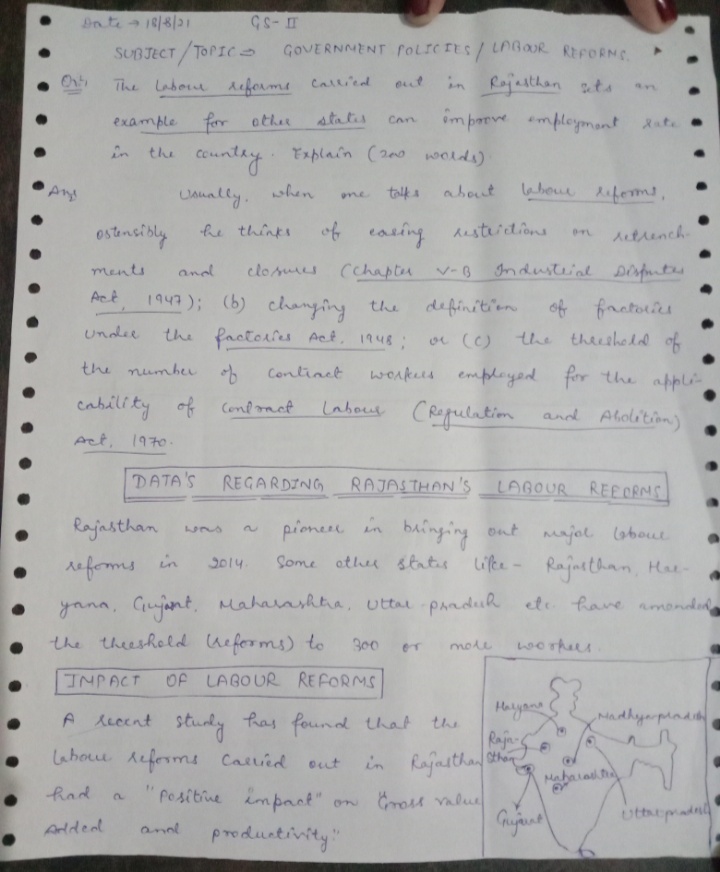 Date → 18/8/21 GS-II
SUBJECT/TOPIC ⇒ GOVERNMENT POLICIES/LABOUR REFORMS.
The labour reforms carried out in Rajasthan sets an
example for other states can improve employment rate
in the country. Explain (200 words).
Ans Usually, when one talks about labour reforms,
ostensibly he thinks of easing restrictions on retrench-
ments and closures (Chapter V-B Industrial Disputes
Act, 1947); (b) changing the definition of factories
under the factories Act, 1948; or (c) the threshold of
the number of contract workers employed for the appli-
cability of Contract Labour (Regulation and Abolition)
Act, 1970.
DATA'S REGARDING RAJASTHAN'S LABOUR REFORMS
Rajasthan was a pioneer in bringing out major labour
reforms in 2014. Some other states like - Rajasthan, Har-
yana, Gujarat, Maharashtra, Uttar pradesh etc. have amended
the threshold (reforms) to 300 or more workers.
IMPACT OF LABOUR REFORMS
A recent study has found that the
labour reforms carried out in Rajasthan
had a "positive impact" on Gross value
Added and productivity."
Haryana
Madhya pradesh
Raja-
sthan
Maharashtra
Gujarat
Uttar pradesh